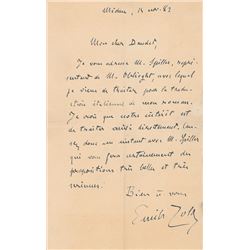 Médan, 14 nov. 83
Mon cher Daudet,
Je vous adresse M. Spiller, repré-
sentant de M. Oblieght, avec lequel
je viens de traiter pour la traduc-
tion italienne de mon roman.
Je crois que notre intérêt est
de traiter ainsi directement. Cau-
sez donc un instant avec M. Spiller
qui vous fera certainement des
propositions très belles et très
sérieuses.
Bien à vous
Emile Zola